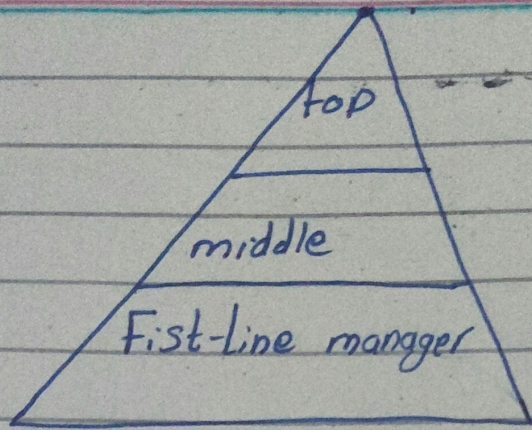 top
middle
Fist-Line manager